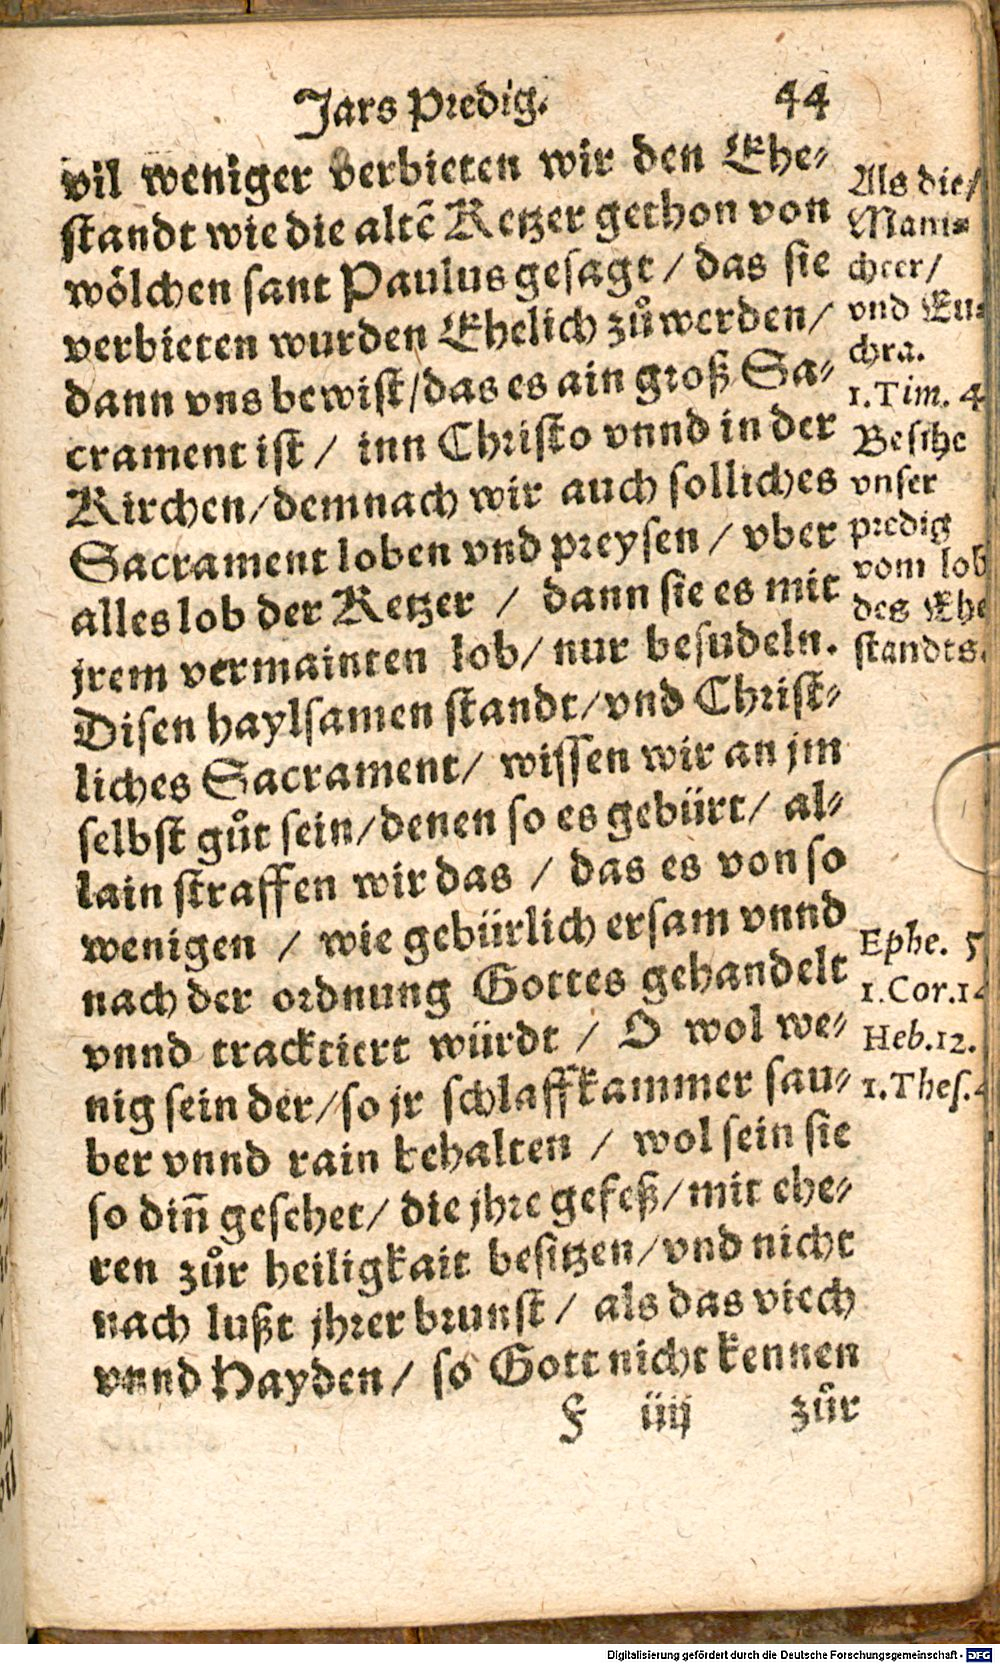 Jars Predig. 44
vil weniger verbieten wir den Ehe⸗
standt wie die altē Ketzer gethon von
wölchen sant Paulus gesagt / das sie
verbieten wurden Ehelich zůwerden /
dann vns bewist / das es ain groß Sa⸗
crament ist / inn Christo vnnd in der
Kirchen / demnach wir auch solliches
Sacrament loben vnd preysen / vber
alles lob der Ketzer / dann sie es mit
jrem vermainten lob / nur besudeln.
Disen haylsamen standt / vnd Christ⸗
liches Sacrament / wissen wir an jm
selbst gůt sein / denen so es gebürt / al⸗
lain straffen wir das / das es von so
wenigen / wie gebürlich ersam vnnd
nach der ordnung Gottes gehandelt
vnnd tracktiert würdt / O wol we⸗
nig sein der / so jr schlaffkammer sau⸗
ber vnnd rain behalten / wol sein sie
so diñ gesehet / die jhre gefeß / mit ehe⸗
ren zůr heiligkait besitzen / vnd nicht
nach lußt jhrer brunst / als das viech
vnnd Hayden / so Gott nicht kennen
F iiij zůr
Als die /
Mani⸗
cheer /
vnd Eu⸗
chra.
1. Tim. 4
Besihe
vnser
predig
vom lob
des Ehe
standts.
Ephe. 5
1. Cor. 14
Heb. 12.
1. Thes. 4
Digitalisierung gefördert durch die Deutsche Forschungsgemeinschaft - DFG